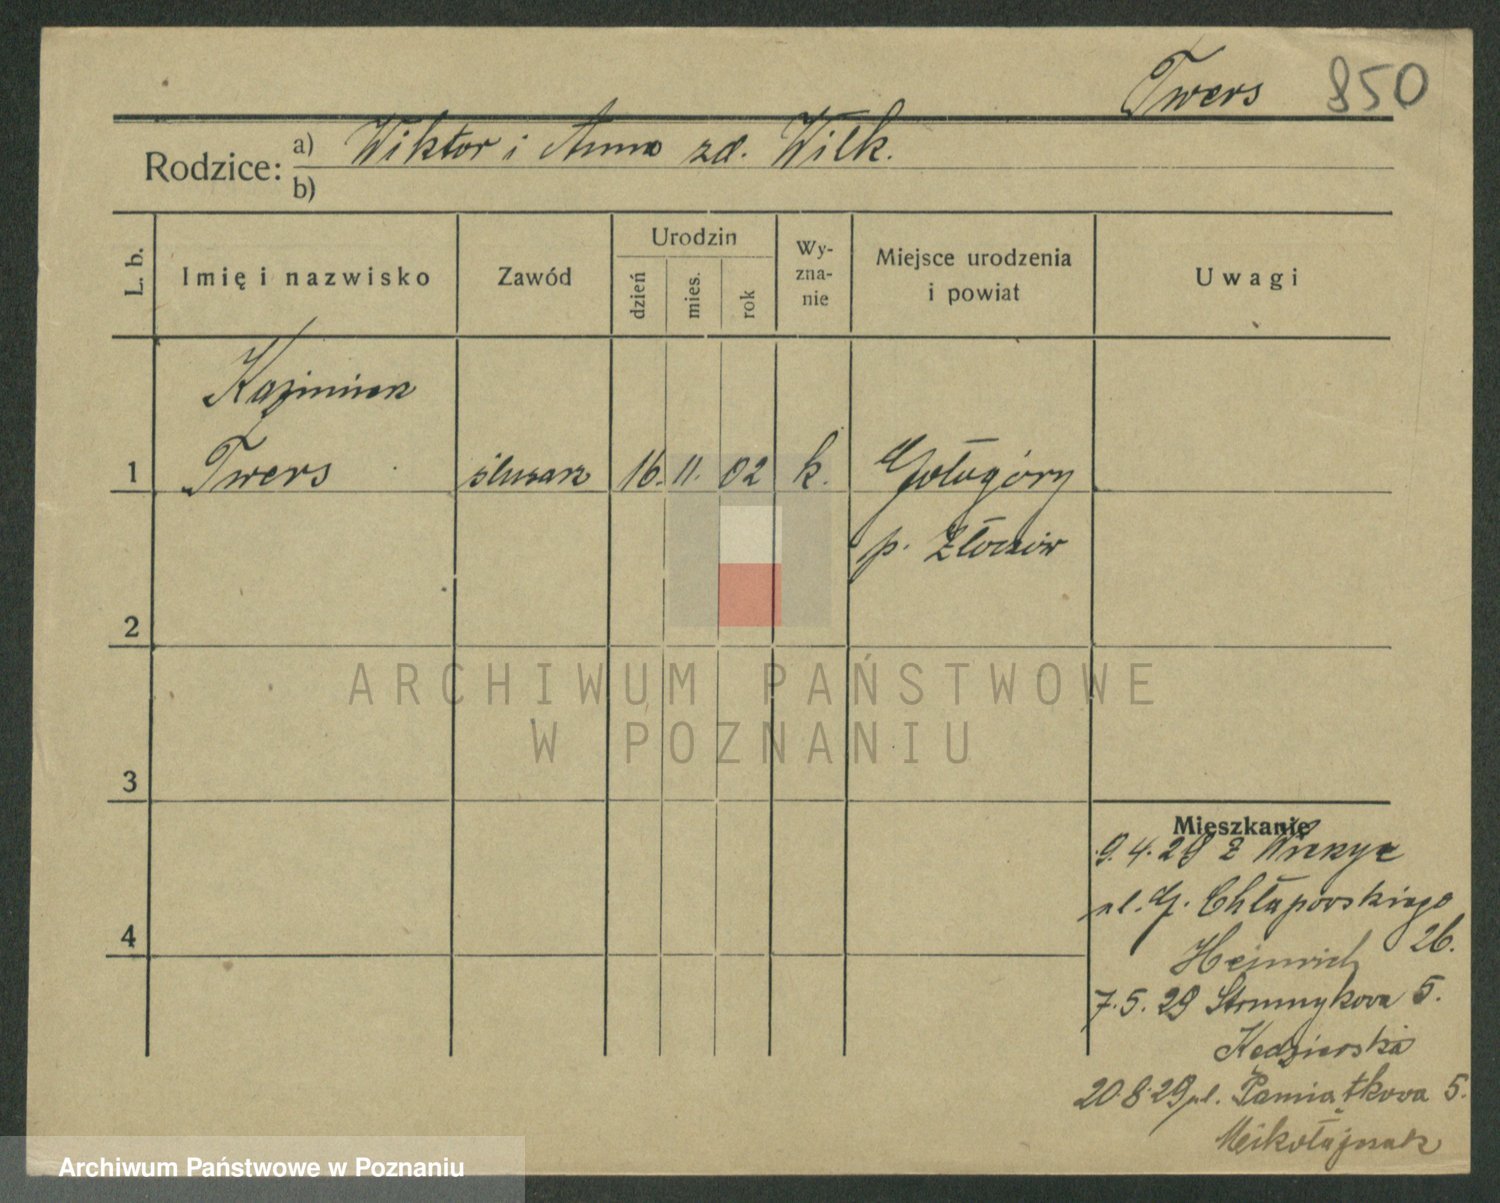 Twers 850
Rodzice: a) Wiktor i Anna zd. Wilk.
b)
L. b. Imię i nazwisko Zawód Urodzin dzień mies. rok Wy-zna-nie Miejsce urodzenia i powiat Uwagi
Kazimierz
1 Twers ślusarz 16. 11. 02 k. Gołogóry
p. Złoczów
2
ARCHIWUM PAŃSTWOWE
W POZNANIU
3
Mieszkanie
9.4.29 z
ul. G. Chłapowskiego
26.
Heinrich
7.5.29 Strumykowa 5.
Kędzierska
4
20.8.29 ul. Pamiątkowa 5.
Mikołajczak
Archiwum Państwowe w Poznaniu